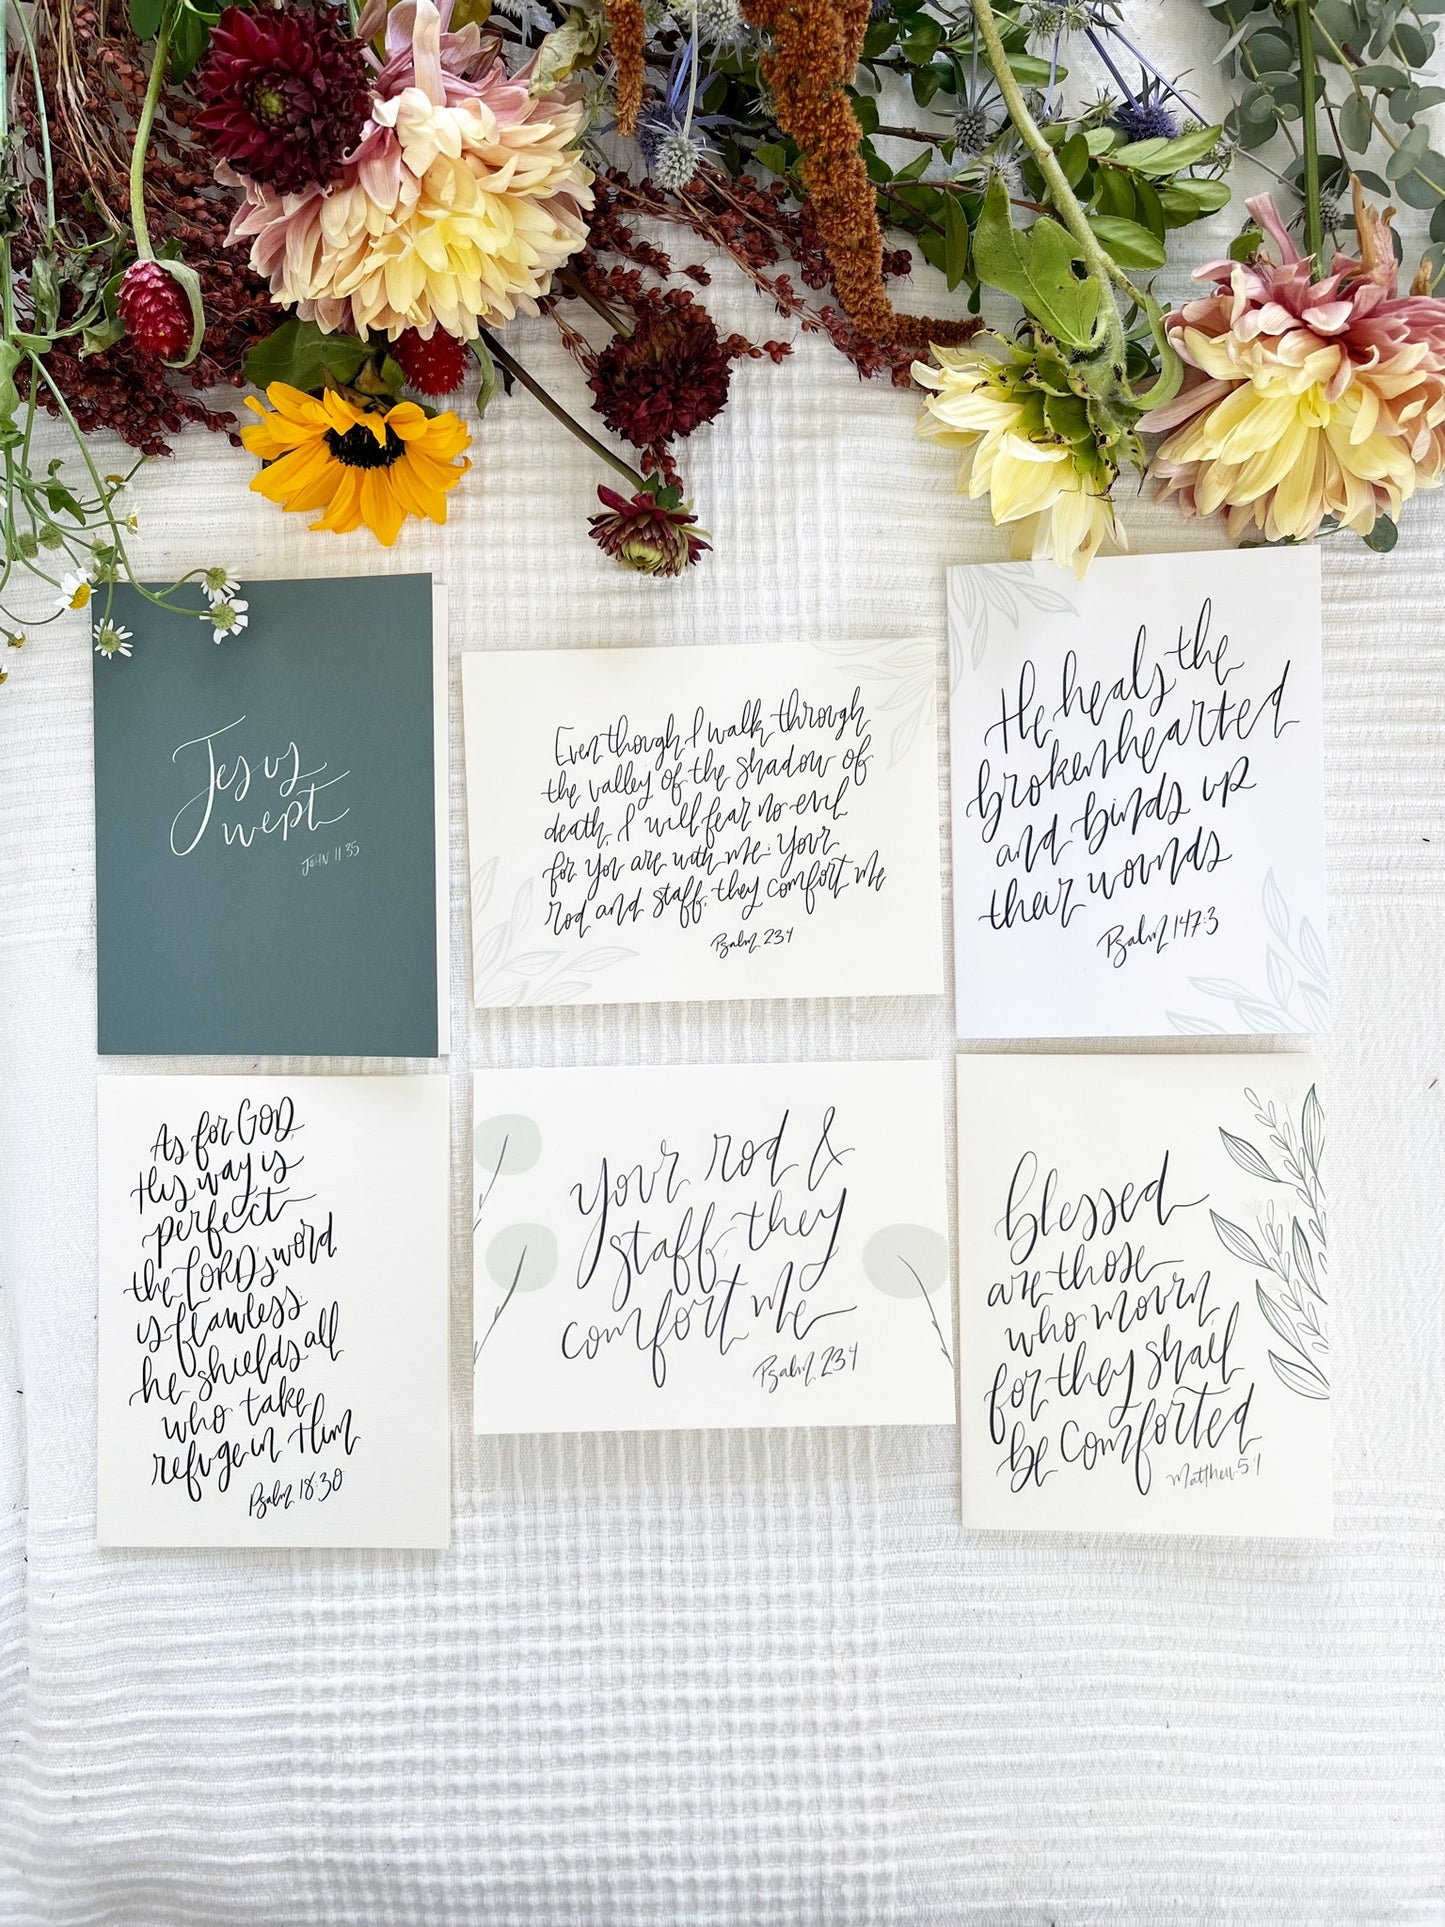 Jesus
wept
JOHN 11:35
Even though I walk through
the valley of the shadow of
death, I will fear no evil
for you are with me; your
rod and staff, they comfort me
Psalm 23:4
He heals the
brokenhearted
and binds up
their wounds
Psalm 147:3
As for GOD,
His way is
perfect
the LORD's word
is flawless;
he shields all
who take
refuge in Him
Psalm 18:30
your rod &
staff, they
comfort me
Psalm 23:4
blessed
are those
who mourn,
for they shall
be comforted
Matthew 5:4